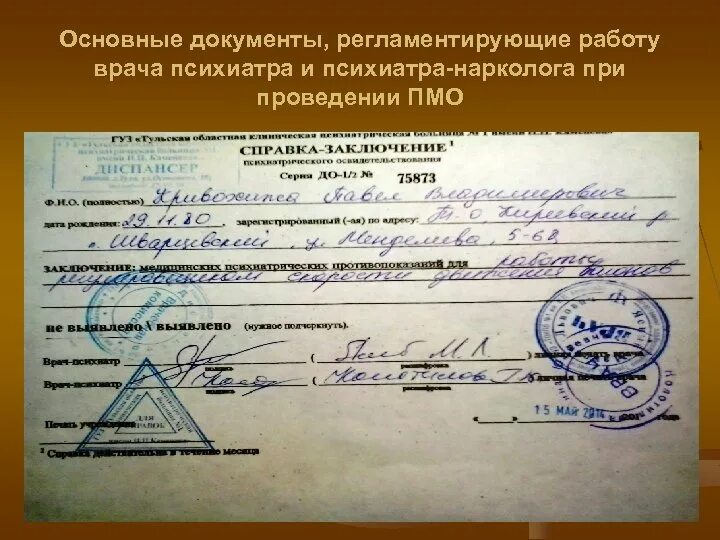 Основные документы, регламентирующие работу
врача психиатра и психиатра-нарколога при
проведении ПМО
ГУЗ «Тульская областная клиническая психиатрическая больница №1 имени Н.П. Каменева»
ДИСПАНСЕР
СПРАВКА-ЗАКЛЮЧЕНИЕ 1
психиатрического освидетельствования
Серия ДО-1/2 № 75873
Ф.И.О. (полностью) Павел Владимирович
дата рождения: 29.11.80 . зарегистрированный (-ая) по адресу: Т-О Киреевский р
п. Шварцевский, ул Менделеева, 5-68
ЗАКЛЮЧЕНИЕ: медицинских психиатрических противопоказаний для работы
регулировщиком скорости движения вагонов
не выявлено \ выявлено (нужное подчеркнуть).
Врач-психиатр ( М.Л. ) личная печать врача
подпись расшифровка
Врач-психиатр ( ) личная печать врача
подпись расшифровка
ДЛЯ СПРАВОК
Печать учреждения
15 МАЙ 2014 года
2 Справка действительна в течение месяца